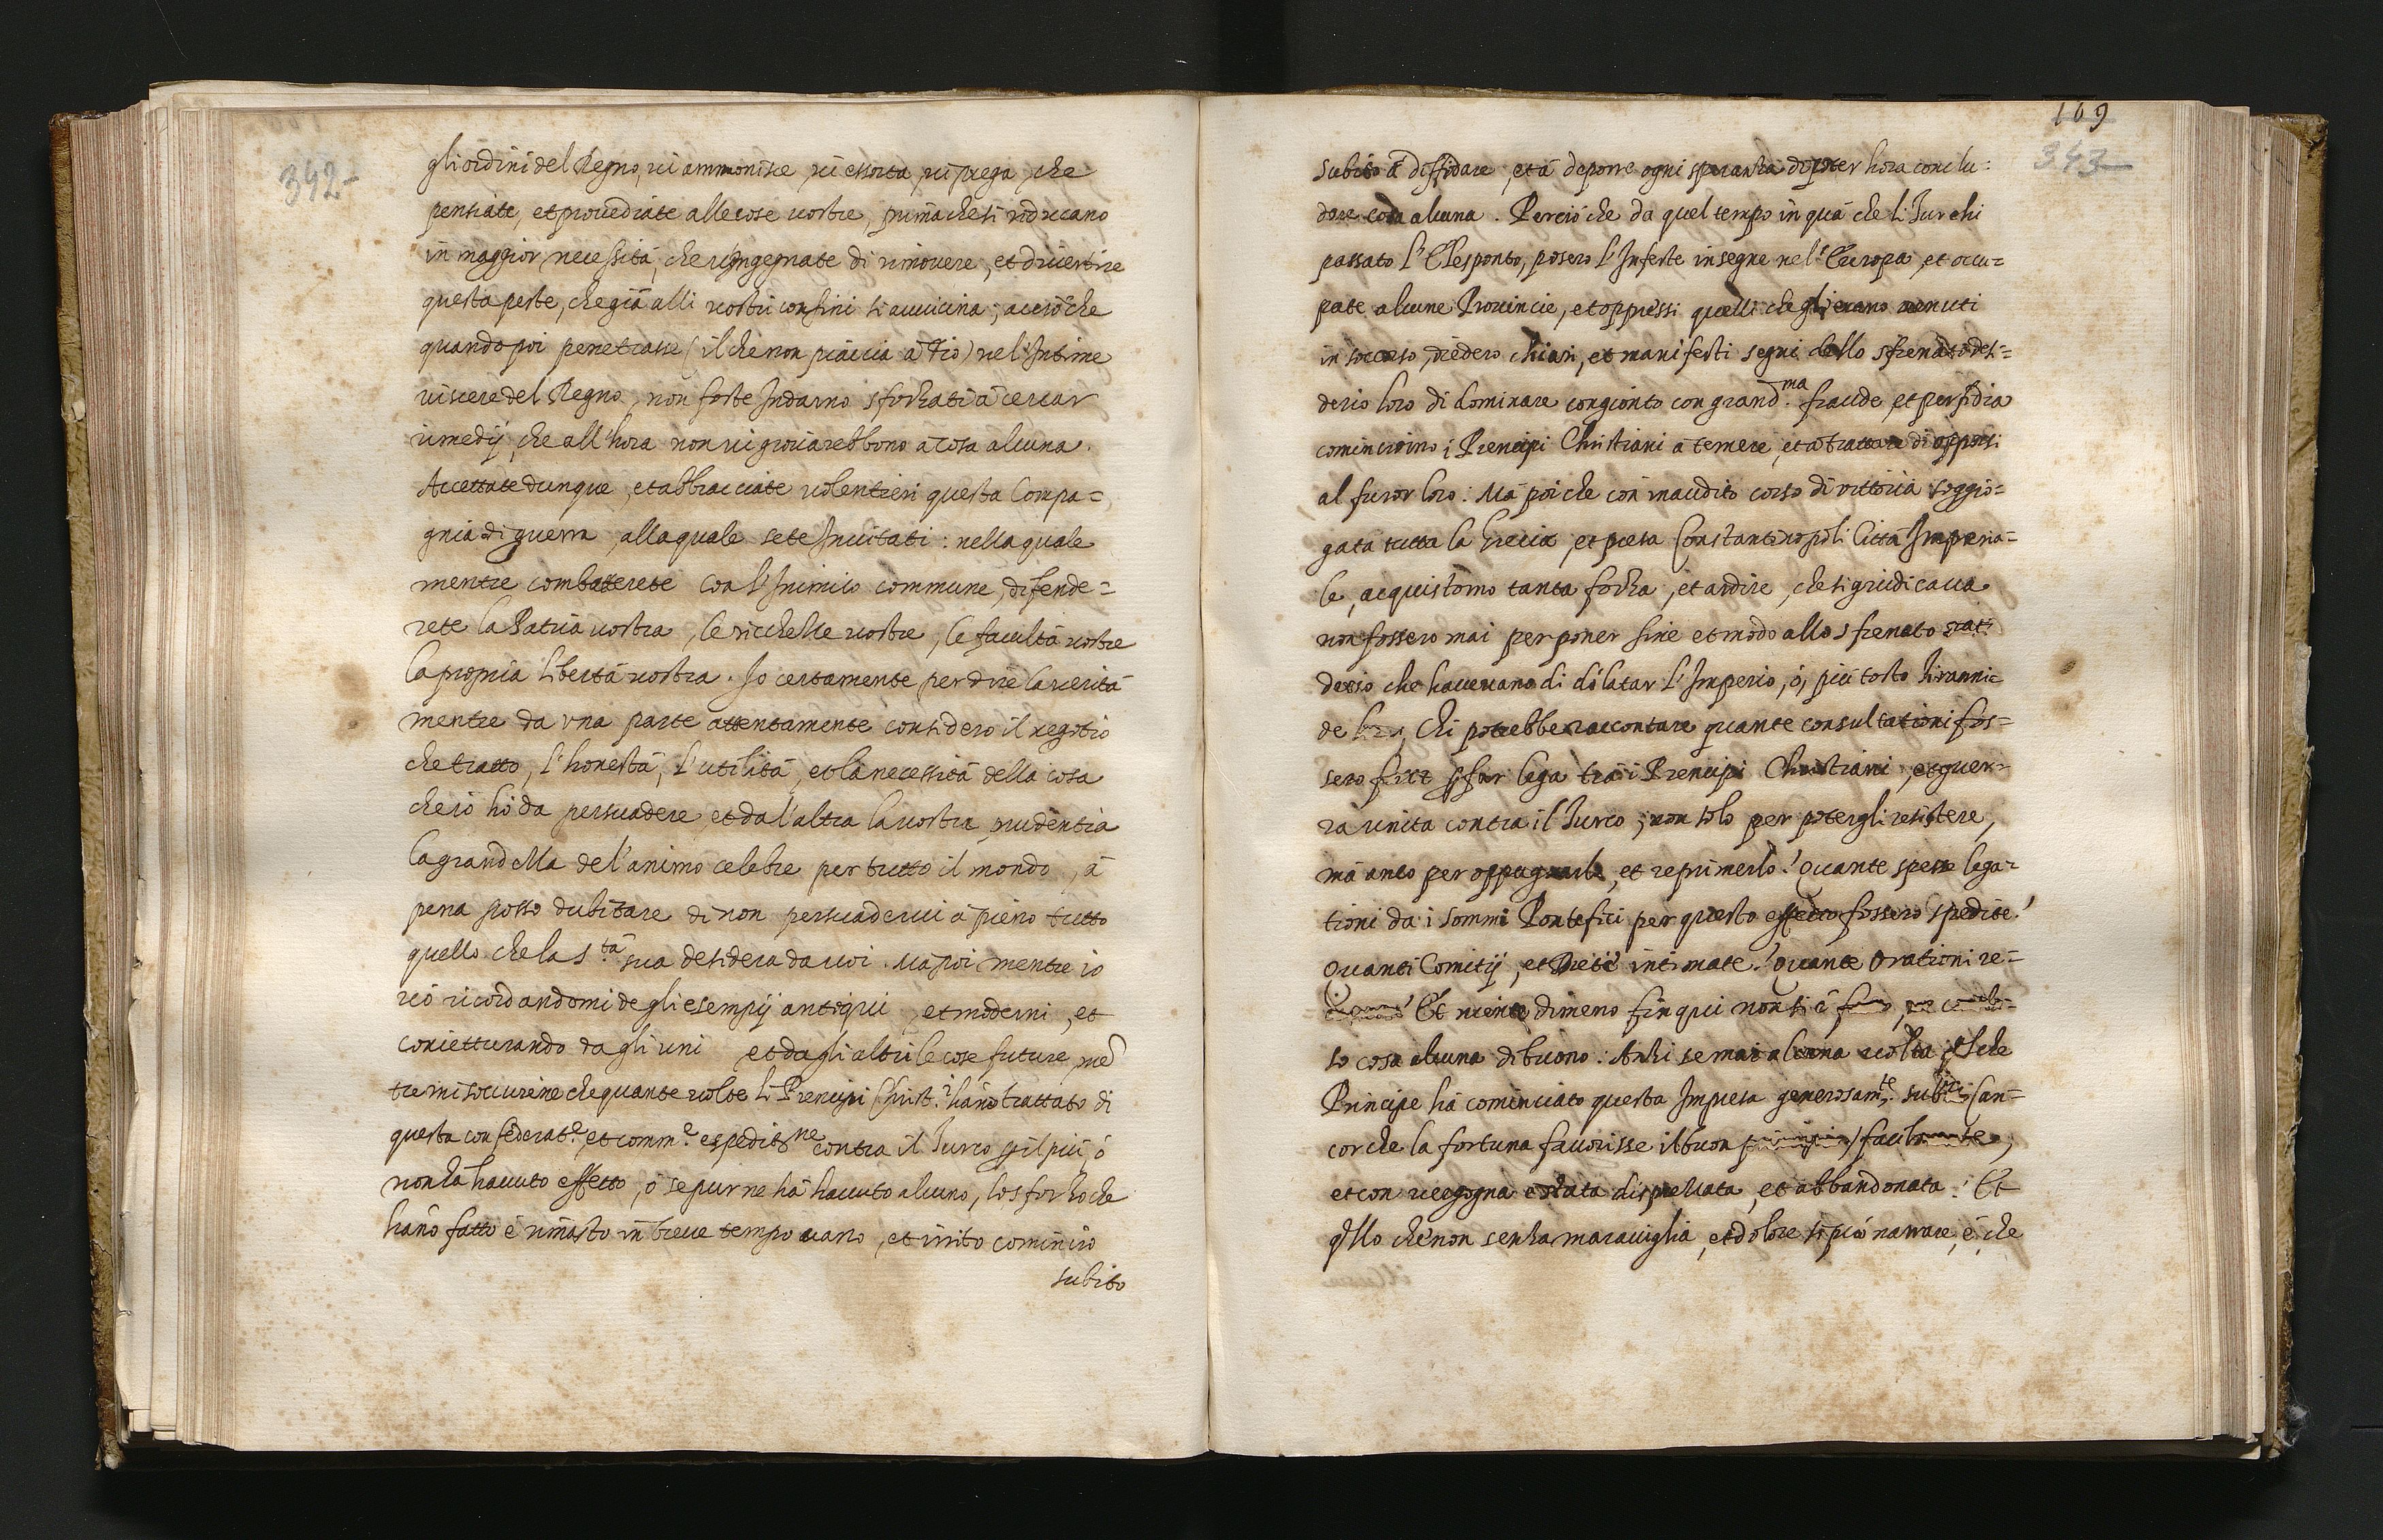 342
gli ordini del Regno, vi ammonisce, vi essorta, vi prega, che
pensiate, et prouediate alle cose uostre, prima che si riducano
in maggior necessità, che v'ingegnate di rimouere, et diuertire
questa peste, che già alli uostri confini si auuicina; acciò che
quando poi penetrasse (il che non piaccia à Dio) nel'Intime
uiscere del Regno, non foste Indarno sforzati à cercar
rimedij, che all'hora non ui giouarebbono a cosa alcuna.
Accettate dunque, et abbracciate uolentieri questa Compa=
gnia di guerra, alla quale sete Inuitati: nella quale
mentre combatterete con l'Inimico commune, difende=
rete la Patria uostra, le ricchezze uostre, le facultà uostre
la propria libertà uostra. Io certamente per dire la uerità
mentre da una parte attentamente considero il negotio
che tratto, l'honestà, l'utilità, et la necessità della cosa
che io hò da persuadere, et dal'altra la uostra prudentia
la grandezza del'animo celebre per tutto il mondo, à
pena posso dubitare di non persuaderui à pieno tutto
quello che la S.tà sua desidera da uoi. Mà poi mentre io
uò ricordandomi de gli esempij antiqui, et moderni, et
conietturando da gli uni et da gli altri le cose future, mē
tre mi souuiene che quante uolte li Prencipi Christ.i hāno trattato di
questa confederat.e et comm.e espedit.ne contra il Turco p il più, ò
non hà hauuto effetto, ò se pur ne hà hauuto alcuno, lo sforzo che
hāno fatto è rimasto in breue tempo uano, et irrito comincio
subito
169
343
subito à diffidare, et à deporre ogni speranza di poter hora conclu:
dere cosa alcuna. Perciò che da quel tempo in quà che li Turchi
passato l'Elesponto, posero l'Infeste insegne nel'Europa, et occu=
pate alcune Prouincie, et oppressi quelli che gli erano uenuti
in soccorso, diedero chiari, et manifesti segni dello sfrenato desi=
derio loro di dominare congionto con grand.ma fraude, et perfidia
comincioino i Prencipi Christiani à temere, et à trattare di opporsi
al furor loro: Mà poi che con inaudito corso di uittoria soggio=
gata tutta la Grecia, et presa Constantinopoli Città Imperia=
le, acquistorno tanta forza, et ardire, che si giudicaua
non fossero mai per poner fine et modo allo sfrenato
derio che haueuano di dilatar l'Imperio, ò, più tosto Tirannie
de Chi potrebbe raccontare quante consultationi fos=
sero p far lega trà i Prencipi Christiani, et guer=
ra unita contra il Turco, non solo per potergli resistere,
mà anco per oppugnarlo, et reprimerlo! Quante spesse lega=
tioni da i sommi Pontefici per questo effetto fossero spedite!
Quanti Comitij, et Diete intimate! Quante Orationi re=
Et niente dimeno fin qui non si è
so cosa alcuna di buono. Anzi se mai alcuna uolta
Principe hà cominciato questa Impresa generosam.te (an=
cor che la fortuna fauorisse il buon
et con uergogna è stata disprezzata, et abbandonata! Et
qllo che non senza marauiglia, et dolore si può narrare, è che